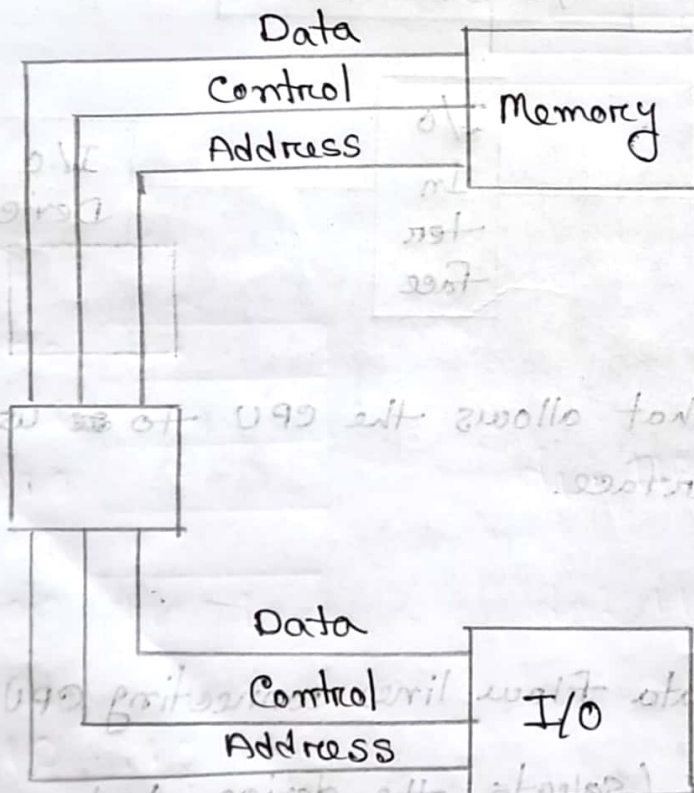 Data
Control
Address
Memory
Data
Control
Address
I/O